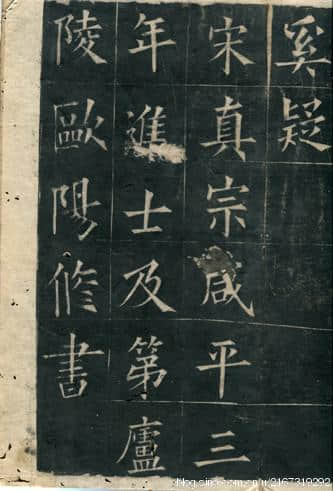 奚疑
宋真宗咸平三
年進士及第廬
陵歐陽脩書
blog.sina.com.cn/u/2167319292